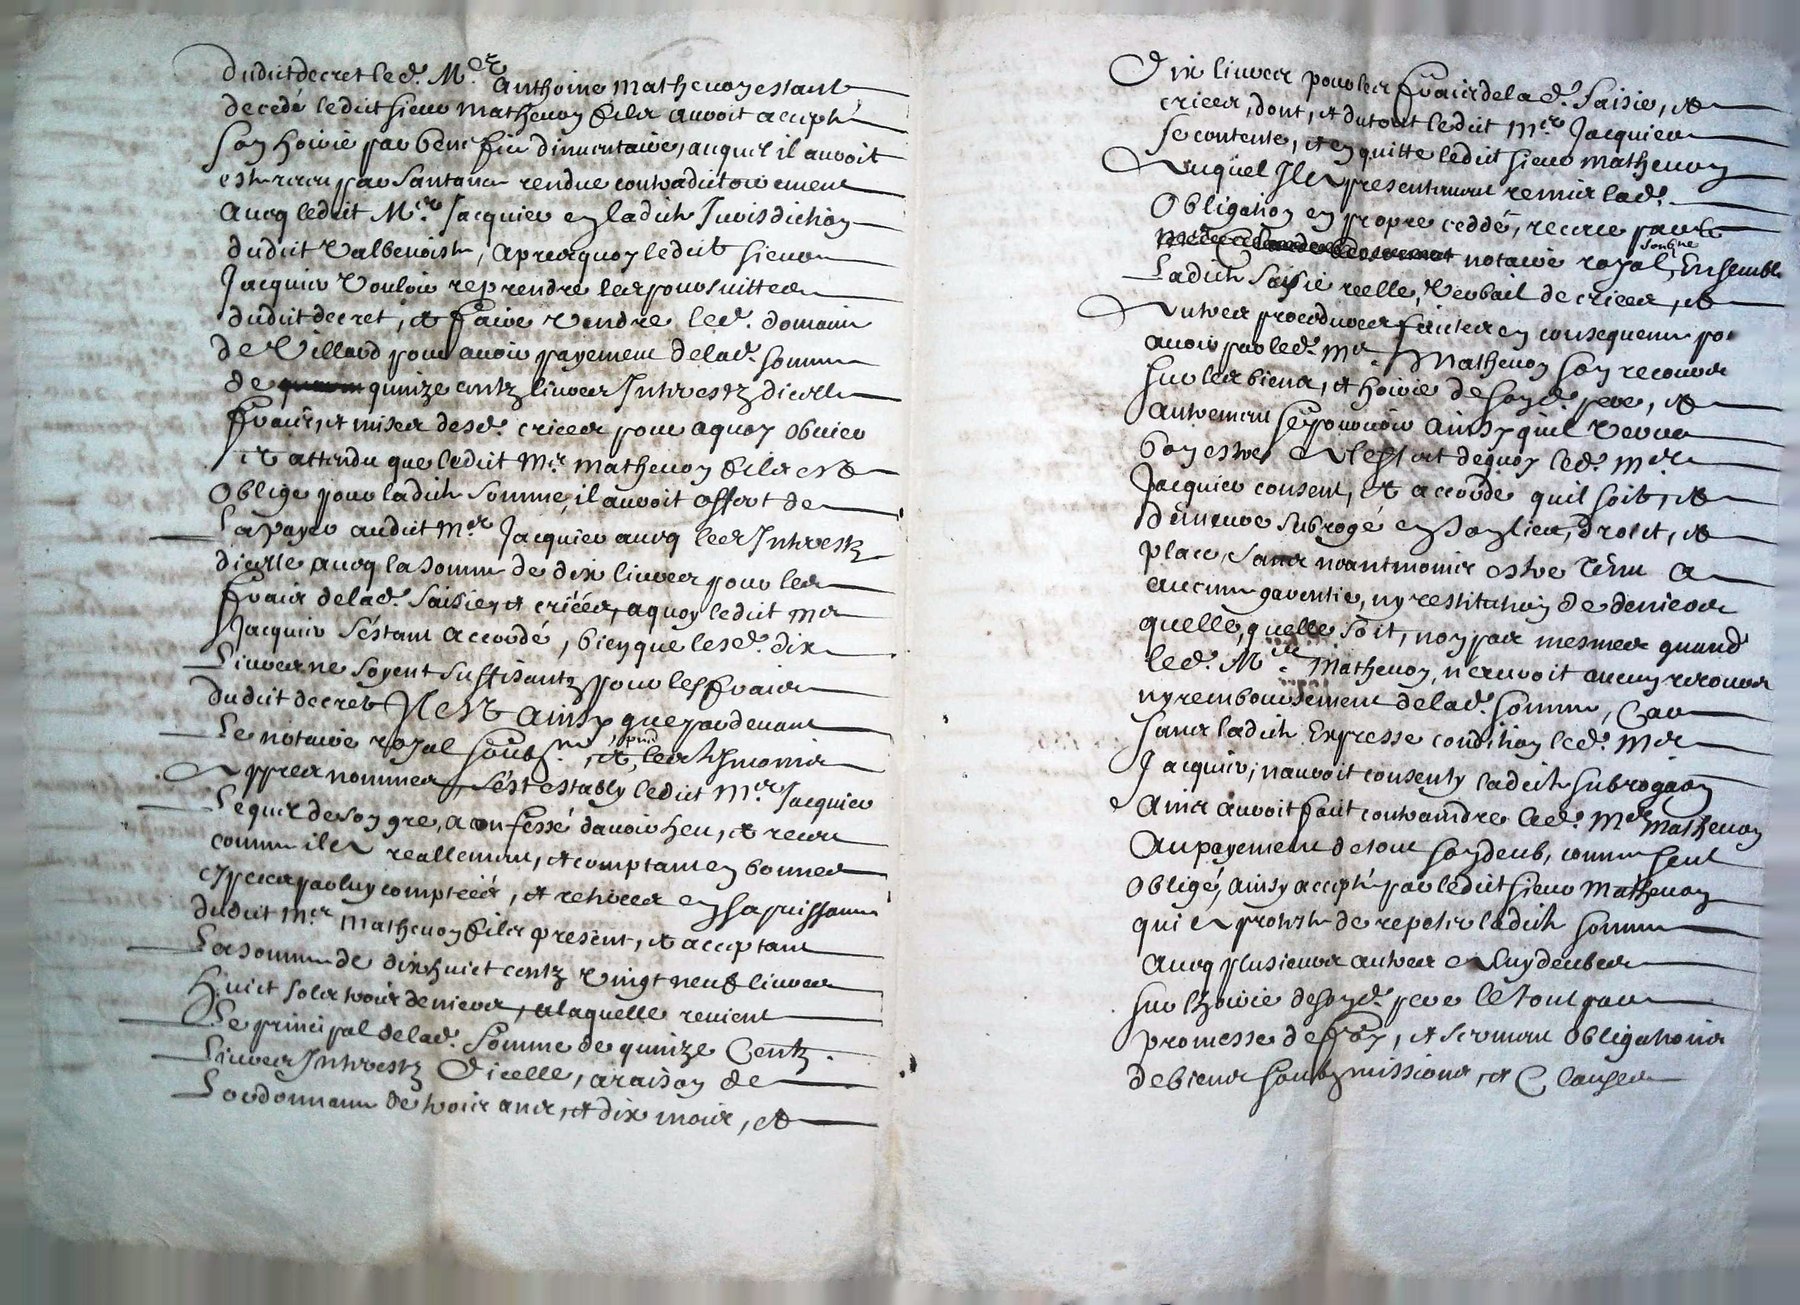 dudit decret led. Mer. anthoine mathevon estant
decedé ledict sieur mathevon fils auroit accepté
son hoirie par benefice dinventaire, auquel il auroit
esté receu par santance rendue contradictoirement
avecq ledict Mer. Jacquier en ladicte Jurisdiction
dudict Valbenoiste, apres quoy ledict sieur
Jacquier Vouloir reprendre les poursuittes
dudict decret, et faire Vendre led. domaine
de Villard pour avoir payement de lad. somme
de quinze centz livres Intherestz dicelle
fraix, et mises desd. criees pour aquoy obvier
et attendu que ledict Mer. mathevon fils est
obligé pour ladicte somme, il auroit offert de
La payer audict Mer. Jacquier avecq les Intherestz
dicelle avecq la somme de dix livres pour les
fraix de lad. saisie, et criées, aquoy ledict Mer
Jacquier séstant accordé, bien que lesd. dix
Livres ne soyent suffisantz pour les fraix
dudict decret Il est ainsy que pardevant
Le notaire royal soubsne., et, les thesmoins
Appres nommes, sést estably ledict Mer. Jacquier
Lequel de son gre, a confessé davoir heu, et receu
comme il a reallement, et comptant en bonnes
especes par luy comptéés, et retirees en sa puissance
dudict Mer. Mathevon fils présent, et acceptant
La somme de dix huict centz vingt neuf livres
huict sols trois deniers, a laquelle revient
Le principal de lad. somme de quinze Centz
Livres Intherestz Dicelle, a raison de
Lordonnance de trois ans, et dix mois, et
Dix livres pour les fraix de lad. saisie, et
criees, dont, et du tout ledict Mer Jacquier
se contente, et en quitte ledict sieur Mathevon
Auquel Il a presentement remis lad.
Obligation en propre ceddé, receue par
notaire royal, soubsne Ensemble
Ladicte saisie reelle, Verbail de criees, et
Autres procedures faictes en consequence pour
avoir par led. Mer. Mathevon son recours
sur les biens, et hoirie de son d. pere, et
autrement se pourvoir ainsy quil verra
bon estre A leffect dequoy led. Mer
Jacquier consent, et accorde quil soit, et
demeure subrogé en son lieu, droict, et
place, sans neantmoins estre tenu a
aucune garentie, ny restitution de deniers
quelle, quelle soit, non pas mesmes quand
led. Mer. Mathevon, n'auroit aucun recours
ny remboursement de lad. somme, Car
sans ladicte Expresse condition led. Mer
Jacquier, nauroit consenty ladicte subrogaon
ains auroit faict contraindre led. Mer Mathevon
Au payement de tout son deub, comme seul
obligé, ainsy accepté par ledict sieur Mathevon
qui a proteste de repeter ladicte somme
avecq plusieurs autres A luy deubes
sur lhoirie de son d. pere le tout par
promesse de foy, et serment obligations
de biens soubzmissions, et Clauses